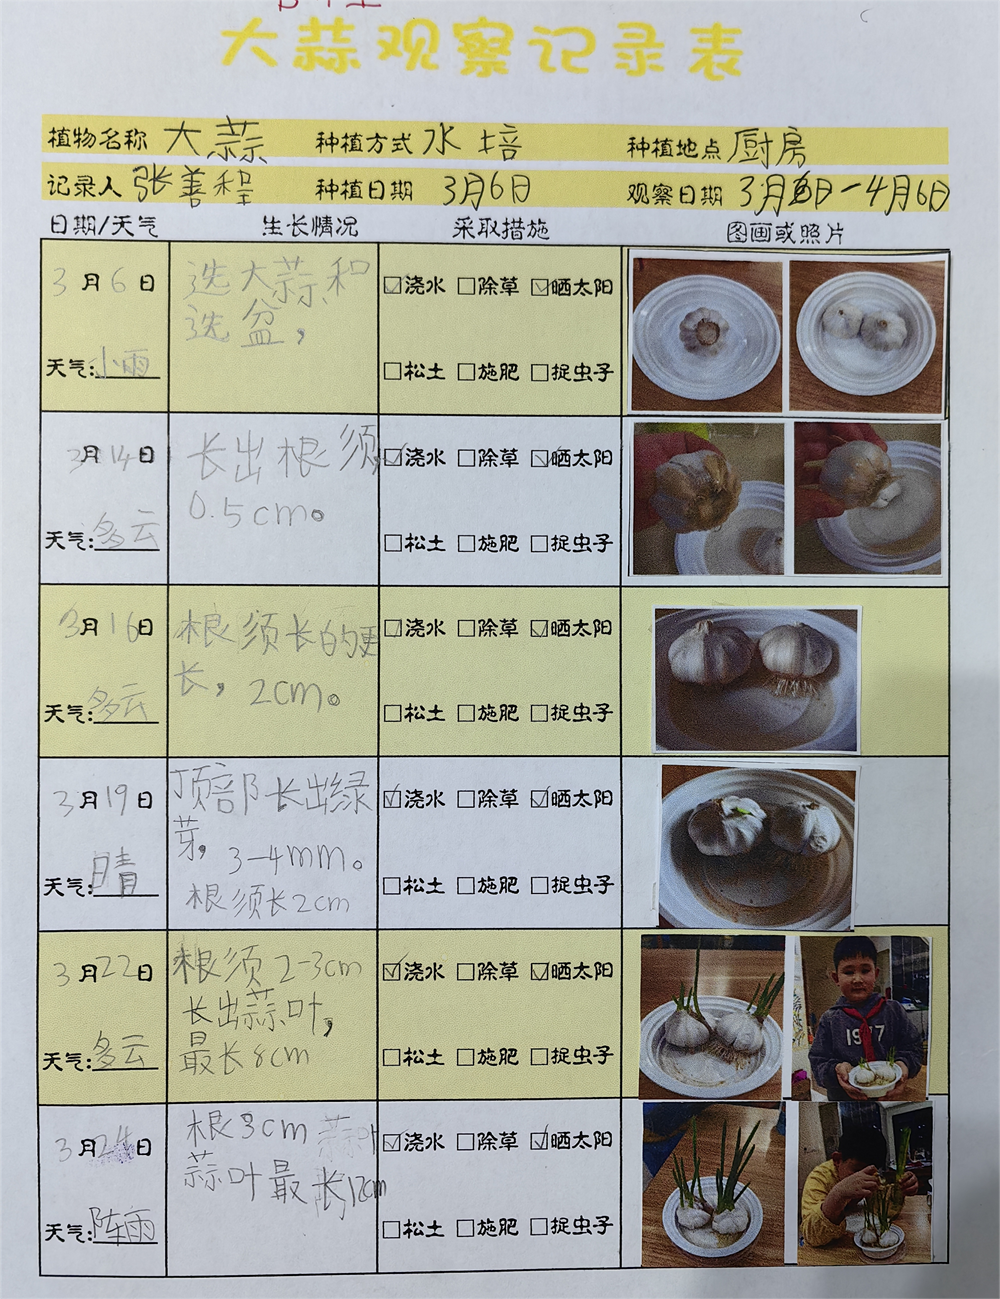 大蒜观察记录表
植物名称 大蒜 种植方式 水培 种植地点 厨房
记录人 张善程 种植日期 3月6日 观察日期 3月6日-4月6日
日期/天气 生长情况 采取措施 图画或照片
3月6日
天气:小雨
选大蒜和
选盆,
☑浇水 ☐除草 ☑晒太阳
☐松土 ☐施肥 ☐捉虫子
3月14日
天气:多云
长出根须
0.5cm。
☑浇水 ☐除草 ☑晒太阳
☐松土 ☐施肥 ☐捉虫子
3月16日
天气:多云
根须长的更
长,2cm。
☑浇水 ☐除草 ☑晒太阳
☐松土 ☐施肥 ☐捉虫子
3月19日
天气:晴
顶部长出绿
芽,3-4mm。
根须长2cm
☑浇水 ☐除草 ☑晒太阳
☐松土 ☐施肥 ☐捉虫子
3月22日
天气:多云
根须2-3cm
长出蒜叶,
最长8cm
☑浇水 ☐除草 ☑晒太阳
☐松土 ☐施肥 ☐捉虫子
1977
3月24日
天气:阵雨
根3cm
蒜叶最长12cm
☑浇水 ☐除草 ☑晒太阳
☐松土 ☐施肥 ☐捉虫子